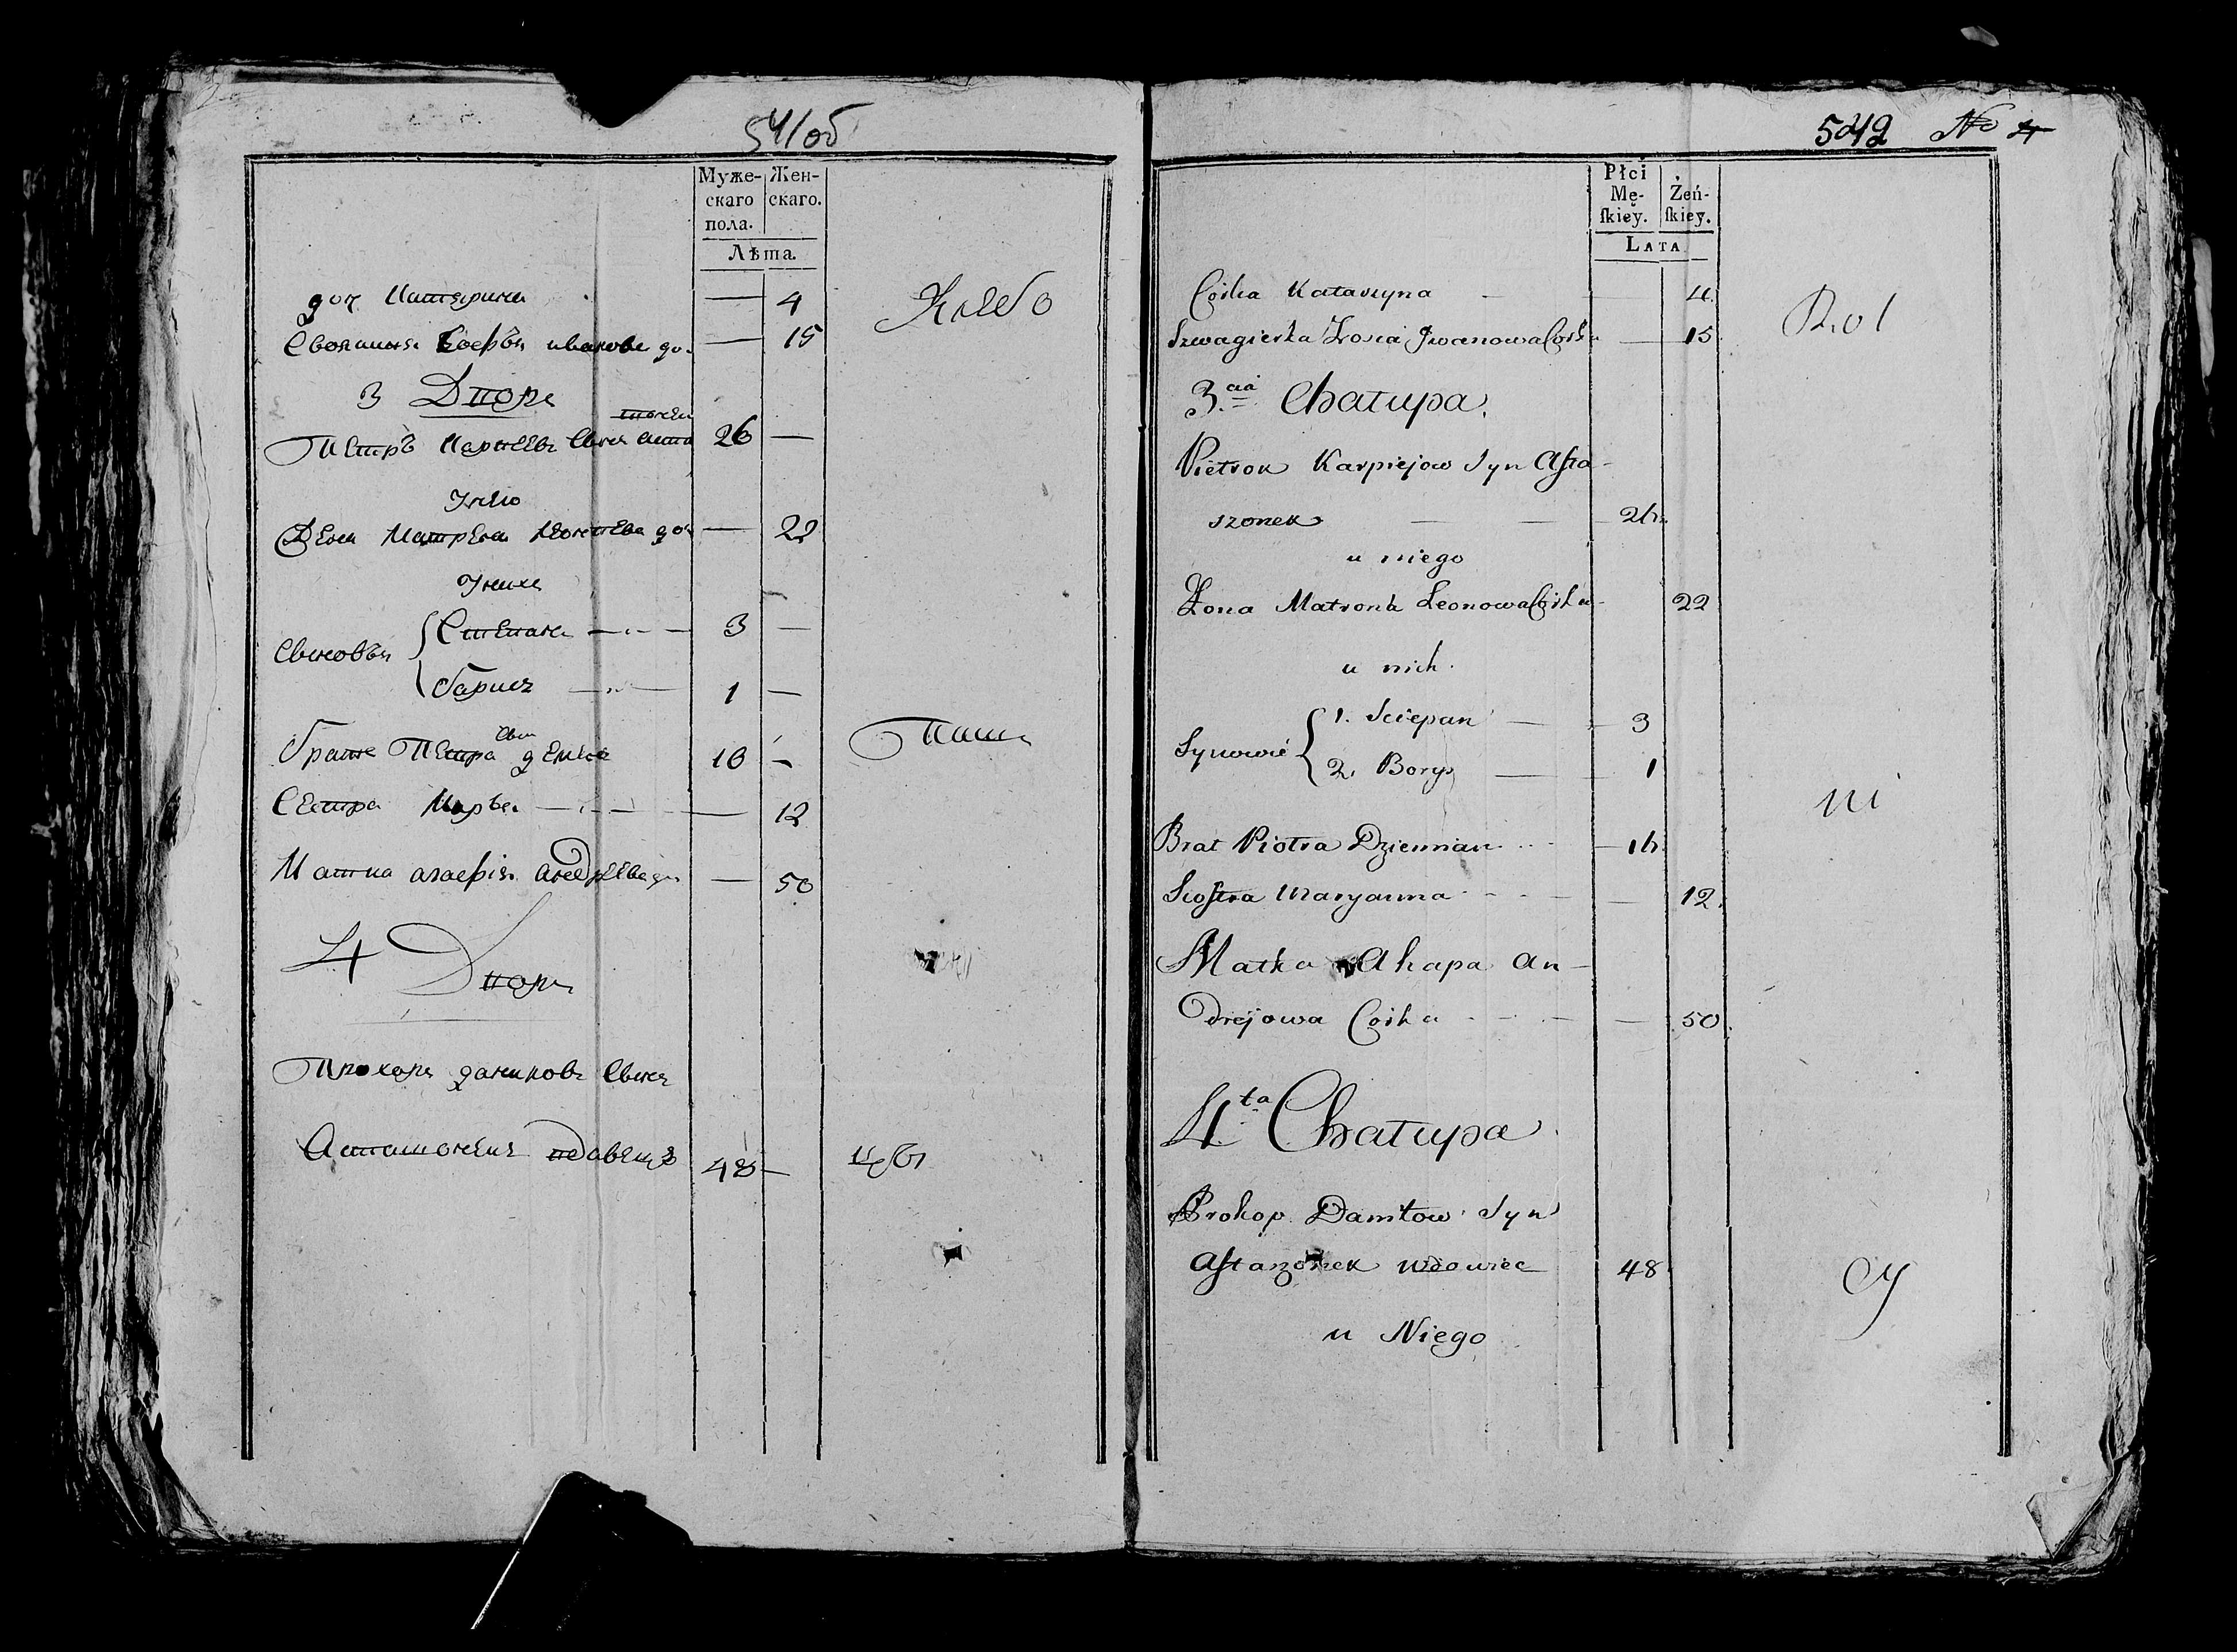 541об
Муже-
скаго
пола.
Жен-
скаго.
Лѣта.
доч Катерина — 4
Хлебо
— 15
3 Дворъ
Петръ Карпеевъ сынъ 26 —
Унего
Жена Матрена до — 22
Унихъ
Сыновья
Степанъ — 3 —
Барисъ — 1 —
Братъ Петра 16 —
Паш
Сестра Марья — 12
Матка Андреева — 50
4 Дворъ
Прохоръ даниловъ сынъ
Асташонекъ вдавецъ 48 —
цы
542 No 4
Płci
Mę-
ſkiey.
Żeń-
ſkiey.
Lata
Corka Katarzyna — 4.
Rol
Szwagierka Zosia Jwanowa Corka — 15
3.cia Chatupa.
Pietrok Karpiejow Syn Aſta-
szonek — — 26.
u niego
Żona Matrona Leonowa Corka - 22
u nich.
Synowie
1. Sciepan — 3
2. Borys — 1
ni
Brat Piotra Dziemian — 16.
Sioſtra Maryanna — 12.
Matka Ahapa An-
drejowa Corka — 50.
4ta Chatupa.
Prokop Daniłow Syn
Aſtaszonek Wdowiec 48
cy
u Niego